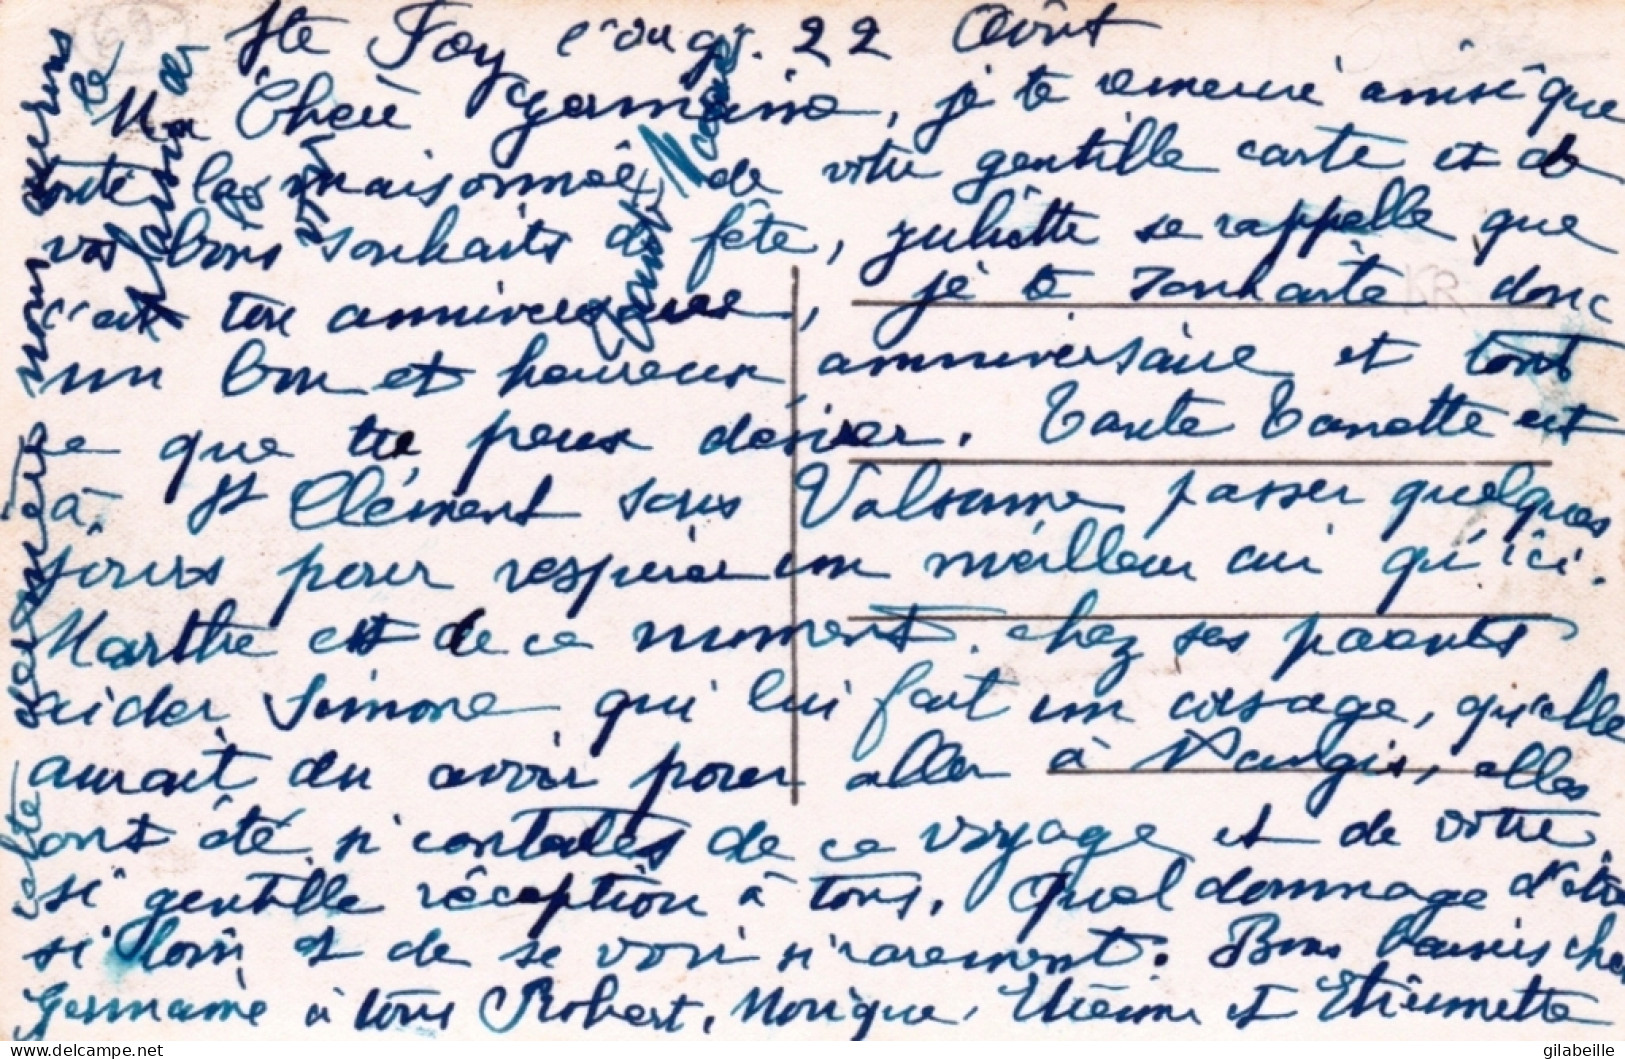 Ste Foy l'Arg. 22 Août
Ma Chère Germaine, je te remercie ainsi que
toute la maisonnée de votre gentille carte et de
vos bons souhaits de fête, juliette se rappelle que
c'est ton anniversaire, je te souhaite donc
un bon et heureux anniversaire et tout
ce que tu peux désirer. Tante Tonette est
à St Clément sous Valsonne passer quelques
jours pour respirer un meilleur air qu'ici.
Marthe est de ce moment chez ses parents
aider Simone qui lui fait un corsage, qu'elle
aurait du avoir pour aller à Nangis, elles
ont été si contentes de ce voyage et de votre
si gentille réception à tous. Quel dommage d'être
si loin et de se voir si rarement. Bons baisers chère
Germaine à tous Robert, Monique, Etienne et Etiennette
carte nous
delcampe.net
gilabeille